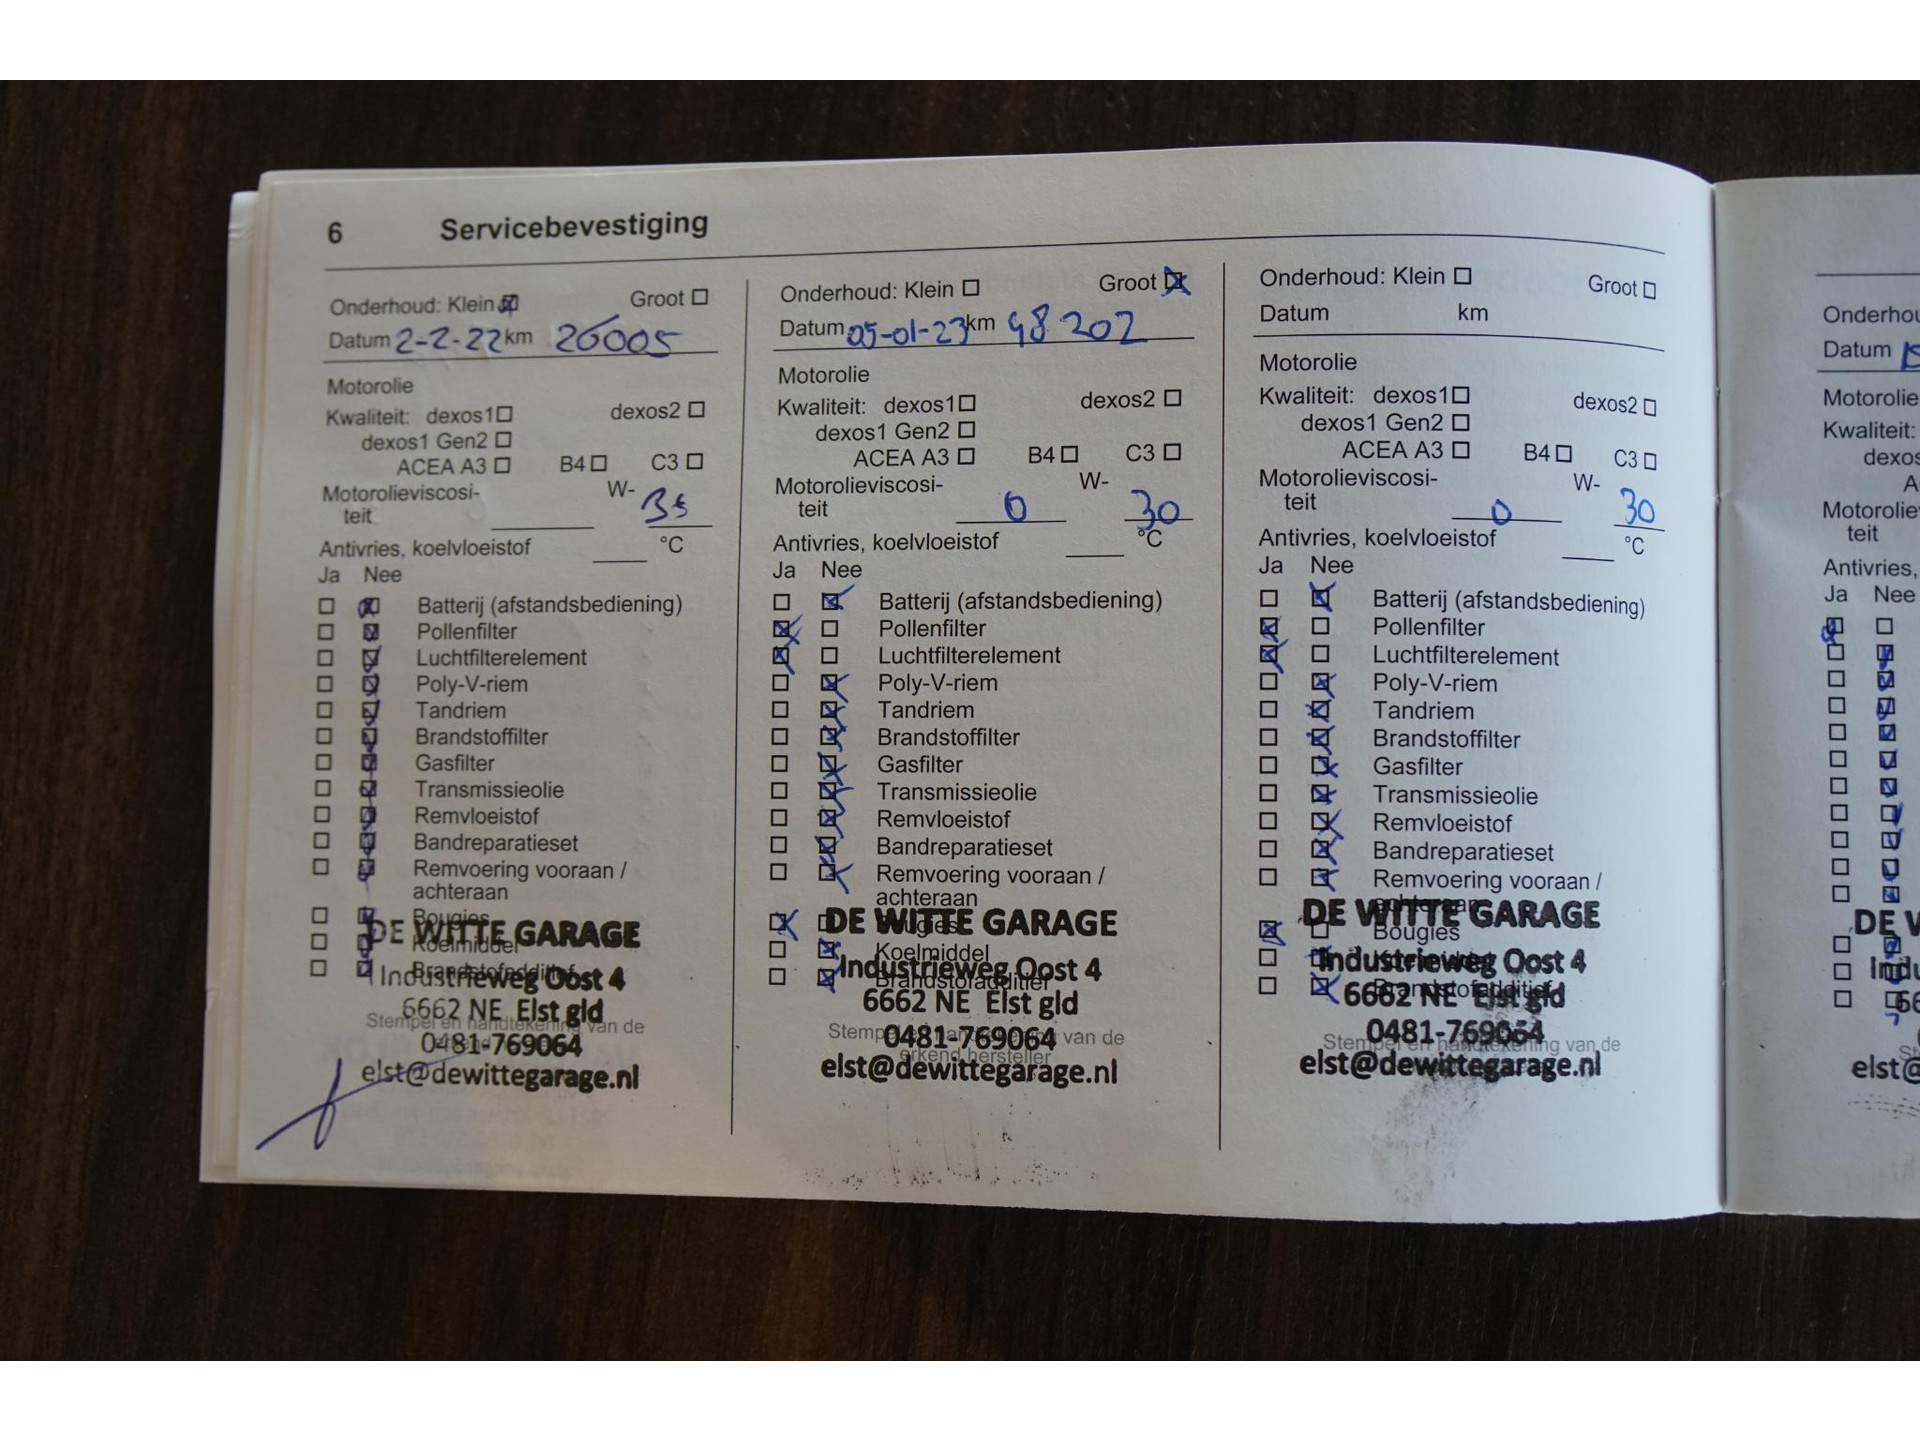 6 Servicebevestiging
Onderhoud: Klein Groot
Datum 2-2-22 km 26005
Motorolie
Kwaliteit: dexos1 dexos2
dexos1 Gen2
ACEA A3 B4 C3
Motorolieviscosi- W-
teit
Antivries, koelvloeistof °C
Ja Nee
Batterij (afstandsbediening)
Pollenfilter
Luchtfilterelement
Poly-V-riem
Tandriem
Brandstoffilter
Gasfilter
Transmissieolie
Remvloeistof
Bandreparatieset
Remvoering vooraan /
achteraan
Bougies
Koelmiddel
Brandstofadditief
DE WITTE GARAGE
Industrieweg Oost 4
6662 NE Elst gld
Stempel en handtekening van de
0481-769064
elst@dewittegarage.nl
Onderhoud: Klein Groot
Datum 05-01-23 km 48202
Motorolie
Kwaliteit: dexos1 dexos2
dexos1 Gen2
ACEA A3 B4 C3
Motorolieviscosi- W-
teit 0 30
Antivries, koelvloeistof °C
Ja Nee
Batterij (afstandsbediening)
Pollenfilter
Luchtfilterelement
Poly-V-riem
Tandriem
Brandstoffilter
Gasfilter
Transmissieolie
Remvloeistof
Bandreparatieset
Remvoering vooraan /
achteraan
Bougies
Koelmiddel
Brandstofadditief
DE WITTE GARAGE
Industrieweg Oost 4
6662 NE Elst gld
Stempel en handtekening van de
0481-769064
erkend hersteller
elst@dewittegarage.nl
Onderhoud: Klein Groot
Datum km
Motorolie
Kwaliteit: dexos1 dexos2
dexos1 Gen2
ACEA A3 B4 C3
Motorolieviscosi- W-
teit 0 30
Antivries, koelvloeistof °C
Ja Nee
Batterij (afstandsbediening)
Pollenfilter
Luchtfilterelement
Poly-V-riem
Tandriem
Brandstoffilter
Gasfilter
Transmissieolie
Remvloeistof
Bandreparatieset
Remvoering vooraan /
achteraan
Bougies
Koelmiddel
Brandstofadditief
DE WITTE GARAGE
Industrieweg Oost 4
6662 NE Elst gld
Stempel en handtekening van de
0481-769064
elst@dewittegarage.nl
Onderhou
Datum
Motorolie
Kwaliteit:
dexos
A
Motorolie
teit
Antivries,
Ja Nee
DE W
Indu
66
elst@